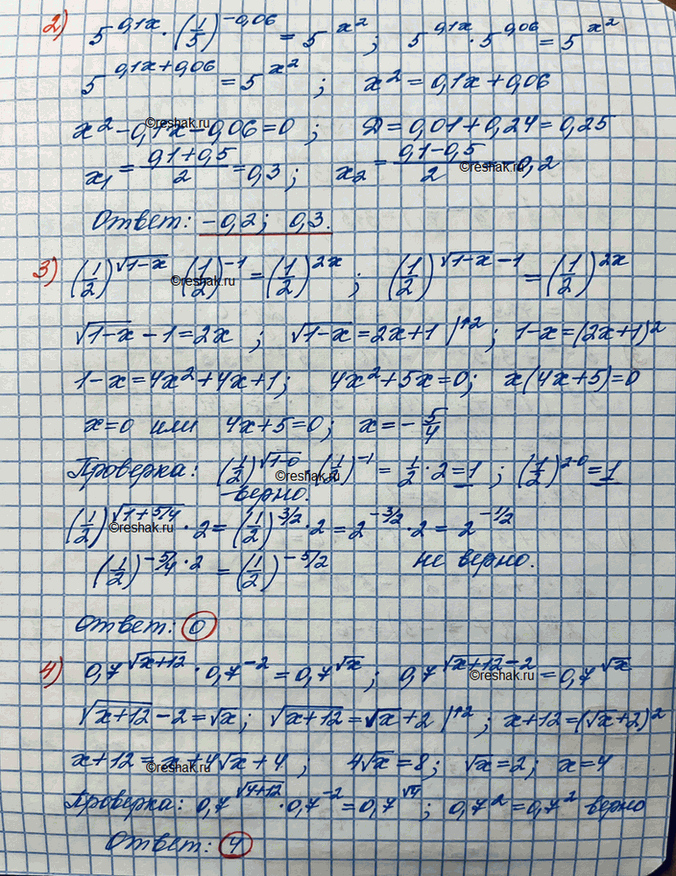 2) 5^(0,1x) · (1/5)^(-0,06) = 5^(x²) ; 5^(0,1x) · 5^(0,06) = 5^(x²)
5^(0,1x+0,06) = 5^(x²) ; x² = 0,1x + 0,06
x² - 0,1x - 0,06 = 0 ; D = 0,01 + 0,24 = 0,25
©reshak.ru
x₁ = (0,1+0,5)/2 = 0,3 ; x₂ = (0,1-0,5)/2 = -0,2
©reshak.ru
Ответ: -0,2; 0,3.
3) (1/2)^(√(1-x)) · (1/2)^(-1) = (1/2)^(2x) ; (1/2)^(√(1-x) -1) = (1/2)^(2x)
©reshak.ru
√(1-x) - 1 = 2x ; √(1-x) = 2x+1 |↑2 ; 1-x = (2x+1)²
1-x = 4x²+4x+1; 4x²+5x=0; x(4x+5)=0
x=0 или 4x+5=0; x=-5/4
Проверка: (1/2)^(√(1-0)) · (1/2)^(-1) = 1/2 · 2 = 1 ; (1/2)^(2·0) = 1
©reshak.ru
- верно.
(1/2)^(√(1+5/4)) · 2 = (1/2)^(3/2) · 2 = 2^(-3/2) · 2 = 2^(-1/2)
©reshak.ru
(1/2)^(-5/4·2) = (1/2)^(-5/2) не верно.
Ответ: 0
4) 0,7^(√(x+12)) · 0,7^(-2) = 0,7^(√x) ; 0,7^(√(x+12) -2) = 0,7^(√x)
©reshak.ru
√(x+12) - 2 = √x; √(x+12) = √x + 2 |↑2 ; x+12 = (√x+2)²
x+12 = x+4√x+4 ; 4√x = 8; √x = 2; x=4
©reshak.ru
Проверка: 0,7^(√(4+12)) · 0,7^(-2) = 0,7^(√4) ; 0,7² = 0,7² верно
Ответ: 4